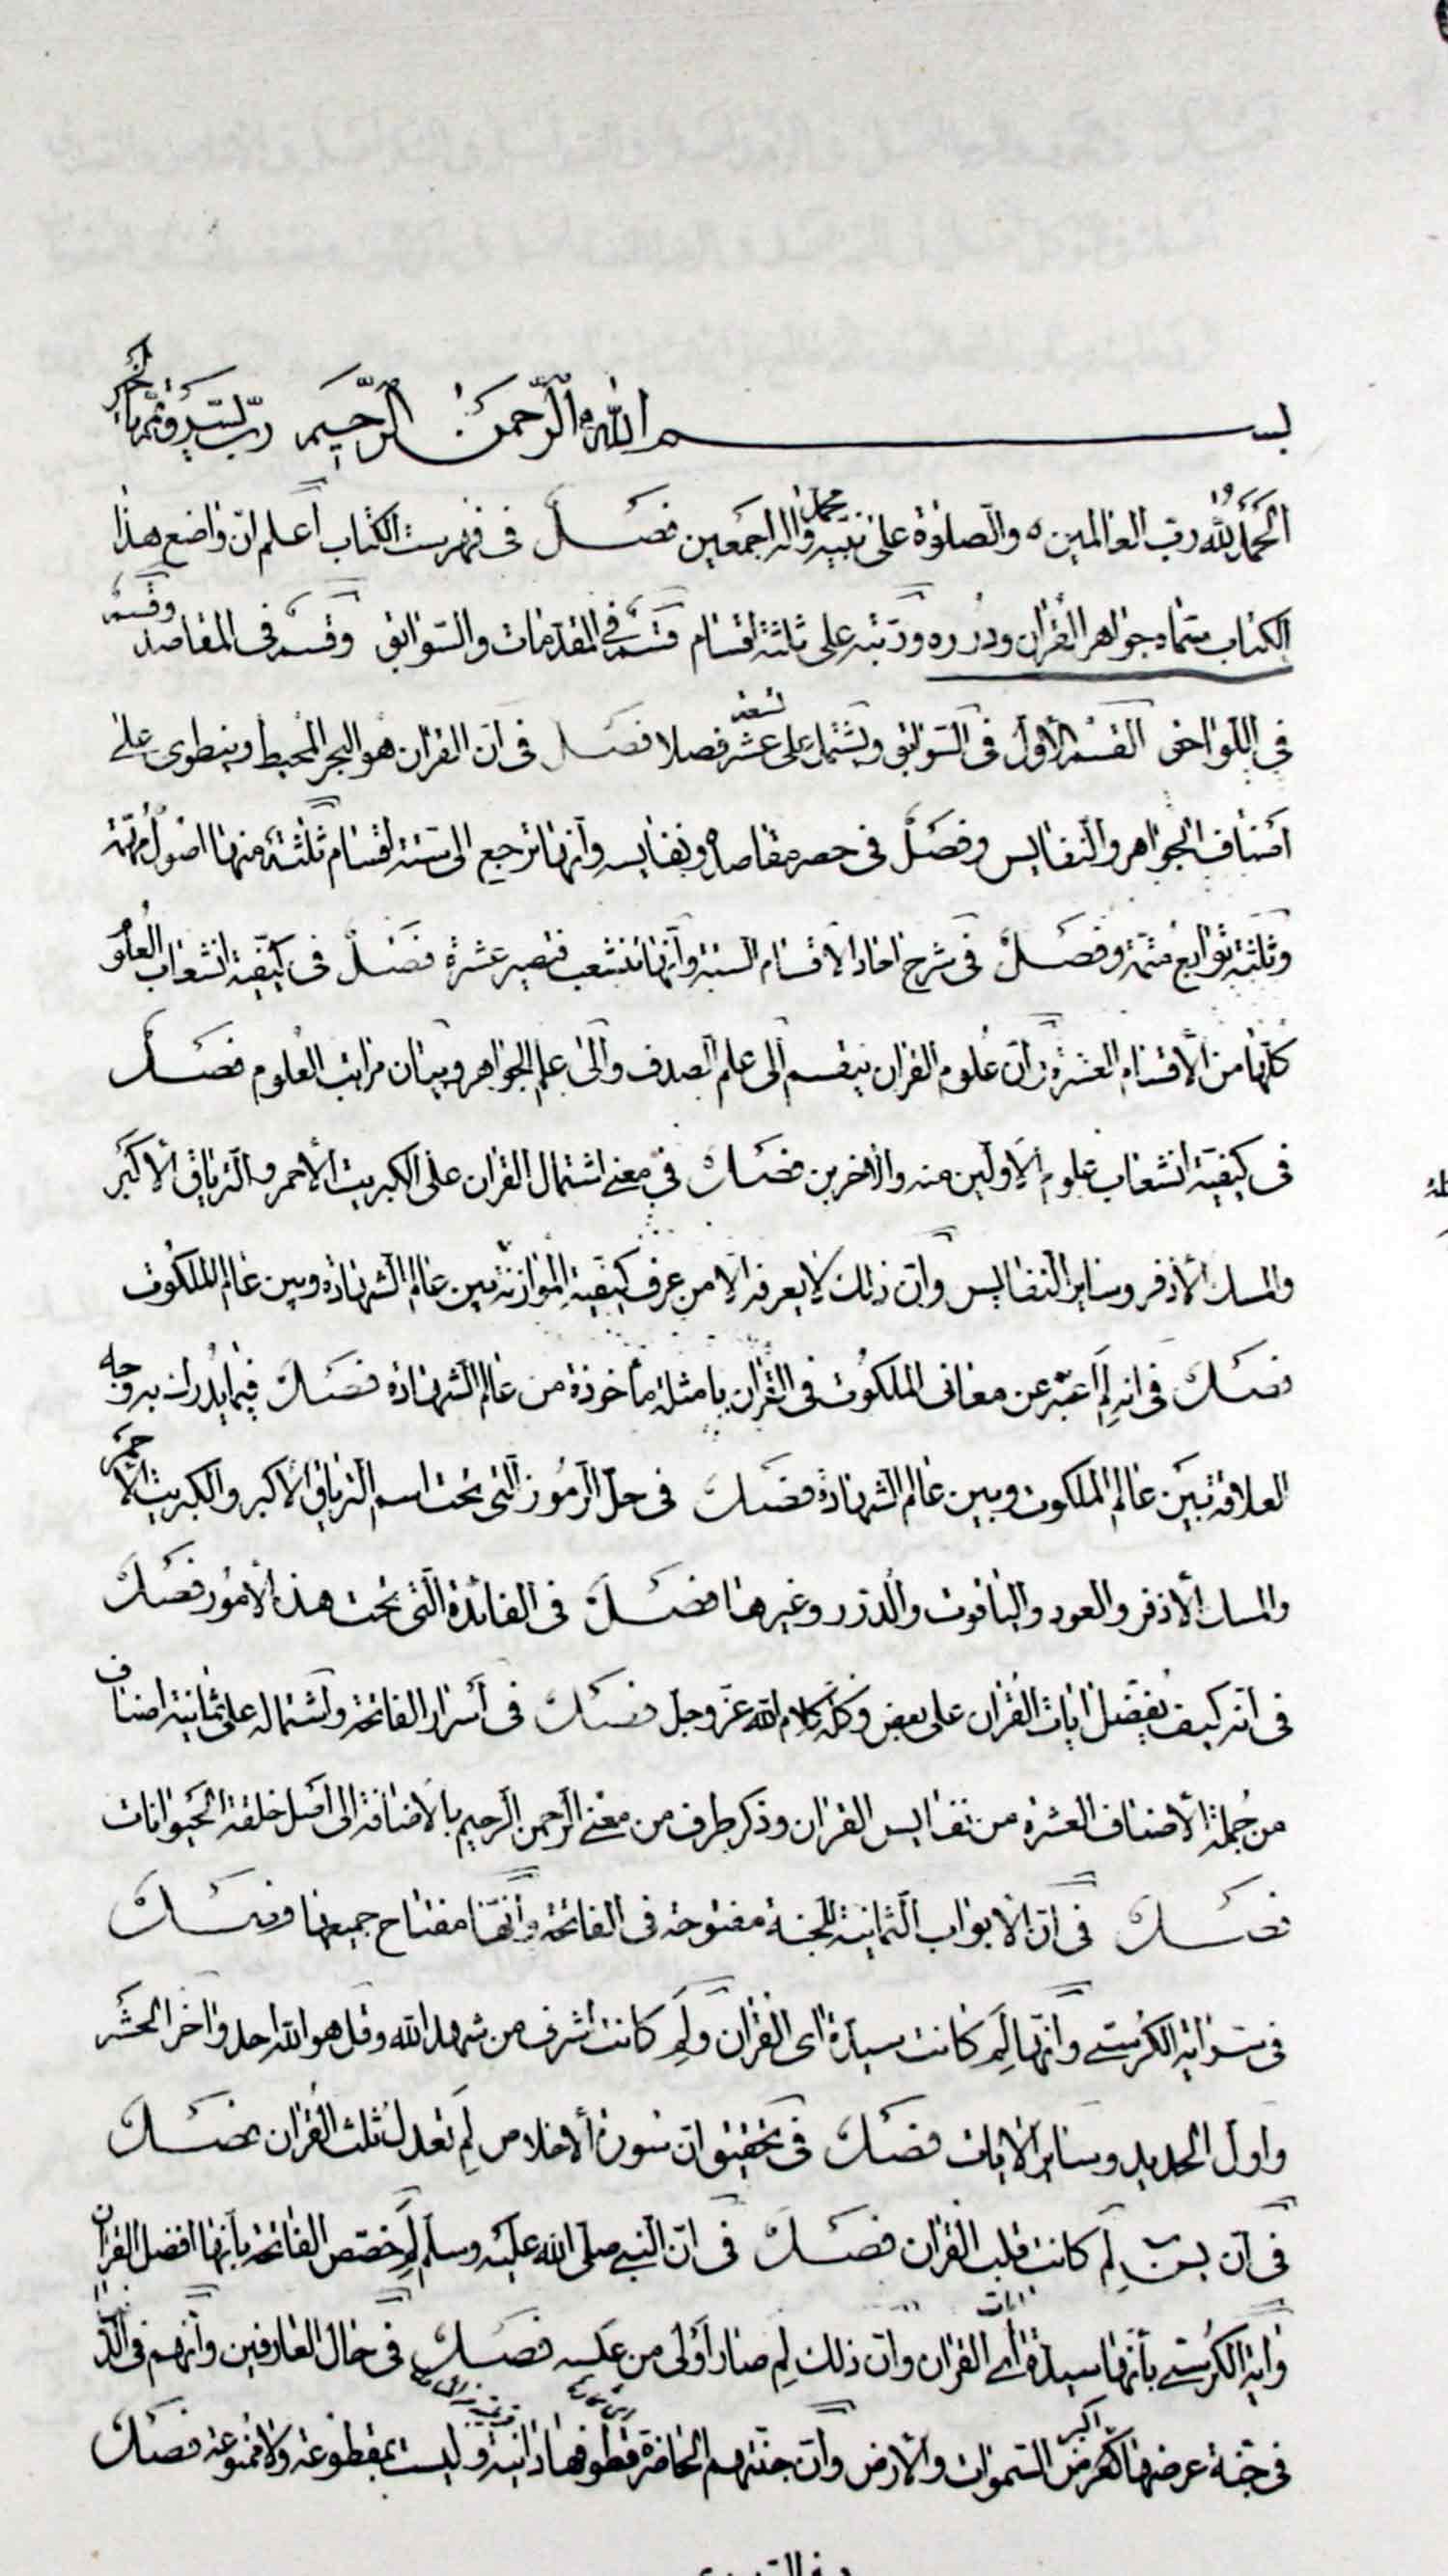 بسم الله الرحمن الرحيم رب يسر وتمم بالخير
الحمد لله رب العالمين ه والصلوة على نبيه محمد واله اجمعين فصل فى فهرست الكتاب اعلم ان واضع هذا
الكتاب سماه جواهر القران ودرره ورتبه على ثلثة اقسام قسم فى المقدمات والسوابق وقسم فى المقاصد وقسم
فى اللواحق القسم الاول فى السوابق ويشتمل على تسعة عشر فصلا فصل فى ان القران هو البحر المحيط وينطوى على
اصناف الجواهر والنفايس وفصل فى حصر مقاصده ونفايسه وانها ترجع الى ستة اقسام ثلثة منها اصول مهمة
وثلثة توابع متمة وفصل فى شرح احاد الاقسام الستة وانها تنشعب فتصير عشرة فصل فى كيفية انشعاب العلوم
كلها من الاقسام العشرة وان علوم القران ينقسم الى علم الصدف والى علم الجواهر وبيان مراتب العلوم فصل
فى كيفية انشعاب علوم الاولين منه والاخرين فصل فى معنى اشتمال القران على الكبريت الاحمر والترياق الاكبر
والمسك الاذفر وساير النفايس وان ذلك لا يعرفه الا من عرف كيفية الموازنة بين عالم الشهادة وبين عالم الملكوت
فصل فى انه لم اعبر عن معانى الملكوت فى القران بامثلة مأخوذة من عالم الشهادة فصل فيما يدرك به وجه
العلاقة بين عالم الملكوت وبين عالم الشهادة فصل فى حل الرموز التى تحت اسم الترياق الاكبر والكبريت الاحمر
والمسك الاذفر والعود والياقوت والدرر وغيرها فصل فى الفائدة التى تحت هذه الامور فصل
فى انه كيف يفضل ايات القران على بعض وكله كلام الله عز وجل فصل فى اسرار الفاتحة واشتماله على ثمانية اصناف
من جملة الاصناف العشرة من نفايس القران وذكر طرف من معنى الرحمن الرحيم بالاضافة الى اصل خلقة الحيوانات
فصل فى ان الابواب الثمانية للجنة مفتوحة فى الفاتحة وانها مفتاح جميعها وفصل
فى سر اية الكرسى وانها لم كانت سيدة اى القران ولم كانت اشرف من شهد الله وقل هو الله احد واخر الحشر
واول الحديد وساير الايات فصل فى تحقيق ان سورة الاخلاص لم تعدل ثلث القران فصل
فى ان يس لم كانت قلب القران فصل فى ان النبى صلى الله عليه وسلم لم خصص الفاتحة بانها افضل القران
واية الكرسى بانها سيدة اى ايات القران وان ذلك لم صار اولى من عكسه فصل فى حال العارفين وانهم فى
فى جنة عرضها اكبر من السموات والارض وان جنتهم الحاضرة قطوفها دانية وليست بمقطوعة ولا ممنوعة فصل